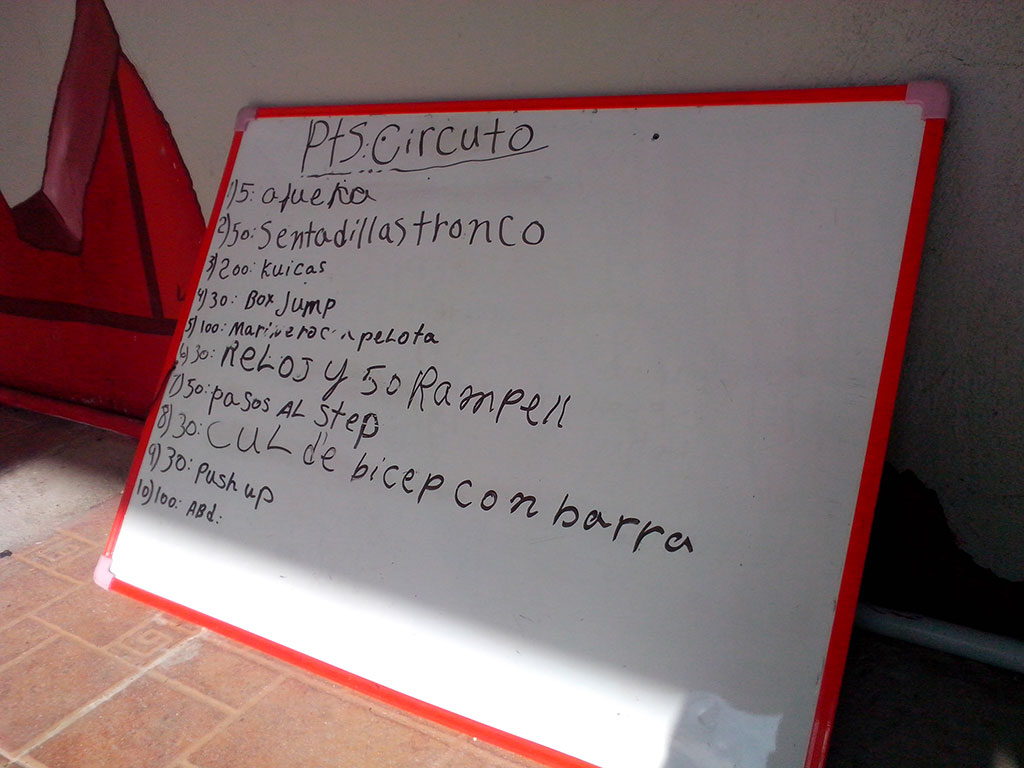 Pts: Circuto
1) 5: afuera
2) 50: Sentadillas tronco
3) 200: Kuicas
4) 30: Box Jump
5) 100: Marinero con peLota
6) 30: ReLOJ y 50 Rampell
7) 50: pasos AL step
8) 30: CUL de bicep con barra
9) 30: Push up
10) 100: ABd: